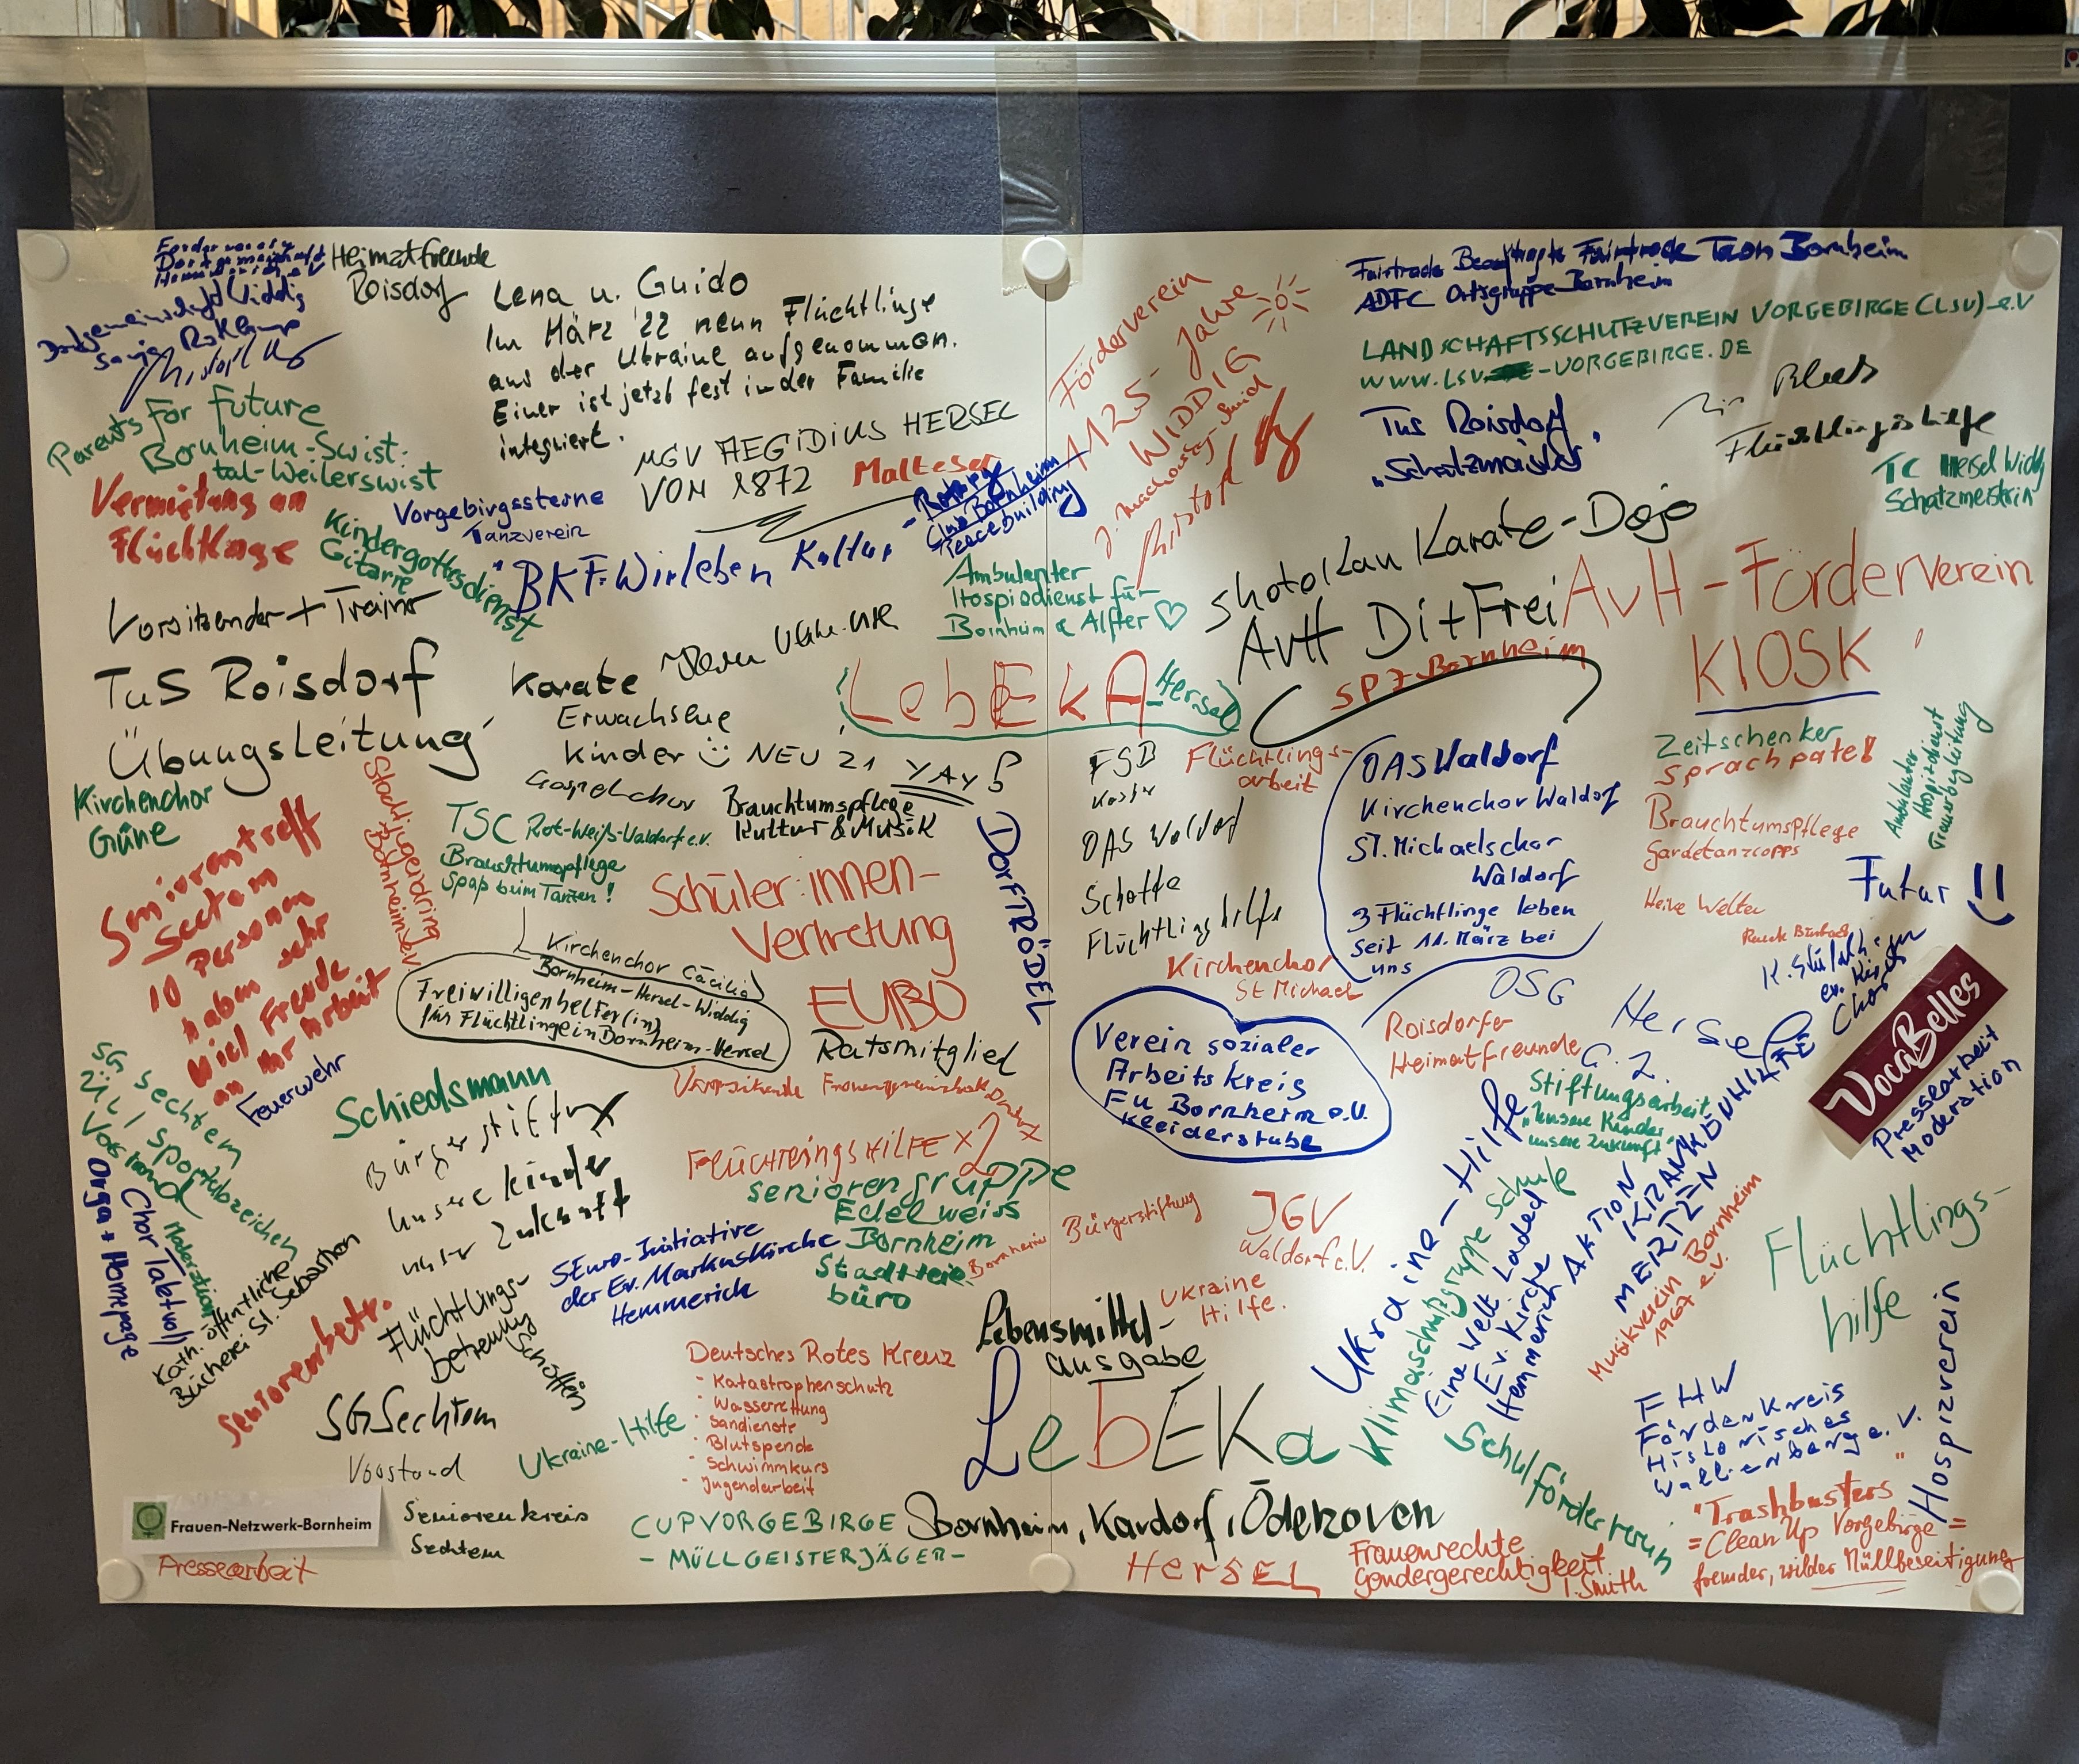 Heimatfreunde
Roisdorf
Dorfgemeinschaft Widdig
Lena u. Guido
Im März '22 neun Flüchtlinge
aus der Ukraine aufgenommen.
Einer ist jetzt fest in der Familie
integriert.
Parents for future
Bornheim-Swist-
tal-Weilerswist
Vermietung an
Flüchtlinge
Kindergottesdienst
Gitarre
Vorgebirgssterne
Tanzverein
MGV AEGIDIUS HERSEL
VOM 1872
Malteser
Rotary
Club Bornheim
Peacebuilding
"BKF-Wirleben Kultur"
Förderverein
1125-Jahre
WIDDIG
Fairtrade Beauftragte Fairtrade Town Bornheim
ADFC Ortsgruppe Bornheim
LANDSCHAFTSSCHUTZVEREIN VORGEBIRGE (LSV) e.V
WWW.LSV-VORGEBIRGE.DE
TuS Roisdorf
"Schatzmeister"
Flüchtlingshilfe
TC Hersel Widdig
Schatzmeisterin
Vorsitzender + Trainer
TuS Roisdorf
Übungsleitung
Karate
Erwachsene
Kinder NEU 21 YAY!
Ambulanter
Hospizdienst für
Bornheim & Alfter ♡
LebEKA-Hersel
Shotokan Karate-Dojo
AvH Dit+Frei
AvH-Förderverein
KIOSK
SPZ-Bornheim
Kirchenchor
Güne
Stadtjugendring
Bornheim e.V
Gospelchor
TSC Rot-Weiß-Waldorf e.V.
Brauchtumspflege
Spaß beim Tanzen!
Brauchtumspflege
Kultur & Musik
DORFTRÖDEL
Seniorentreff
Sechtem
10 Personen
haben sehr
viel Freude
an ihr Arbeit
Schüler:innen-
Vertretung
EUBO
Ratsmitglied
Kirchenchor Cäcilia
Bornheim-Hersel-Widdig
Freiwilligenhelfer(in)
für Flüchtlinge in Bornheim-Hersel
FSB
OAS Waldorf
Schöffe
Flüchtlingshilfe
Flüchtlings-
arbeit
Kirchenchor
St Michael
OAS Waldorf
Kirchenchor Waldorf
St. Michaelschor
Waldorf
3 Flüchtlinge leben
seit 11. März bei
uns
Zeitschenker
Sprachpate!
Brauchtumspflege
Gardetanzcorps
Heike Welter
Ambulanter
Hospizdienst
Trauerbegleitung
Futur
ev. Kirchen
Chor
VocaBelles
Pressearbeit
Moderation
OSG
Hersel
Roisdorfer
Heimatfreunde
Verein sozialer
Arbeitskreis
Fu Bornheim e.V.
Kleiderstube
Stiftungsarbeit
"Unsere Kinder
unsere Zukunft"
SG Sechtem
Sportabzeichen
Vorstand
Feuerwehr
Schiedsmann
Bürgerstiftung
unsere Kinder
unser Zukunft
Vorsitzende Frauengemeinschaft
FLÜCHTLINGSHILFE x2
Seniorengruppe
Edelweiss
Bornheim
Stadtteil
büro
Bornheim
Orga + Homepage
Chor Taktvoll
Moderation
Kath. öffentliche
Bücherei St. Sebastian
Seniorenbetr.
Flüchtlings-
betreuung
Schöffin
5Euro-Initiative
der Ev. Markuskirche
Hemmerich
Bürgerstiftung
JGV
Waldorf e.V.
Ukraine
Hilfe.
Ukraine-Hilfe
Klimaschutzgruppe Schule
Eine Welt Laden
Ev. Kirche
Hemmerich
AKTION
KRANKENHILFE
MERTEN
Musikverein Bornheim
1967 e.V.
Flüchtlings-
hilfe
Hospizverein
SG Sechtem
Vorstand
Ukraine-Hilfe
Deutsches Rotes Kreuz
- Katastrophenschutz
- Wasserrettung
- Sandienste
- Blutspende
- Schwimmkurs
- Jugendarbeit
Lebensmittel-
ausgabe
LebEKa
Bornheim, Kardorf, Ödekoven
HERSEL
Schulförderverein
FHW
Förderkreis
Historisches
Wallenberg e.V.
"Trashbusters"
= CleanUp Vorgebirge =
fremder, wilder Müllbeseitigung
Frauen-Netzwerk-Bornheim
Pressearbeit
Seniorenkreis
Sechtem
CUPVORGEBIRGE
- MÜLLGEISTERJÄGER -
Frauenrechte
Gendergerechtigkeit
I. Smith